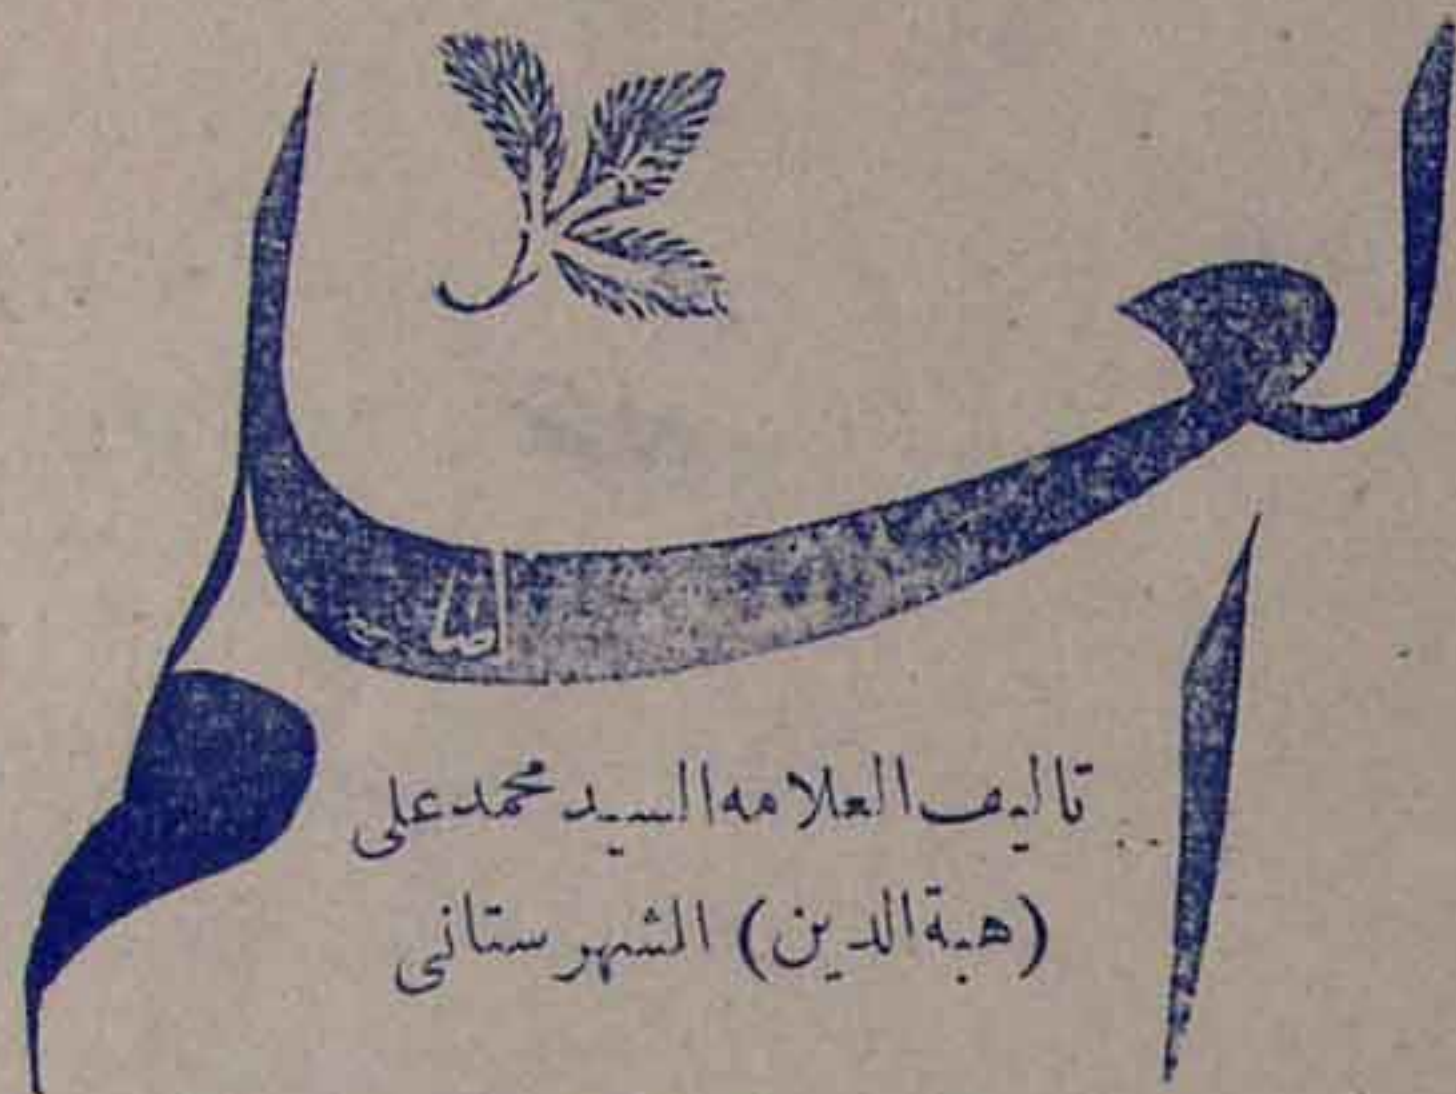 العلم
تاليف العلامه السيد محمدعلى
(هبةالدين) الشهرستانى